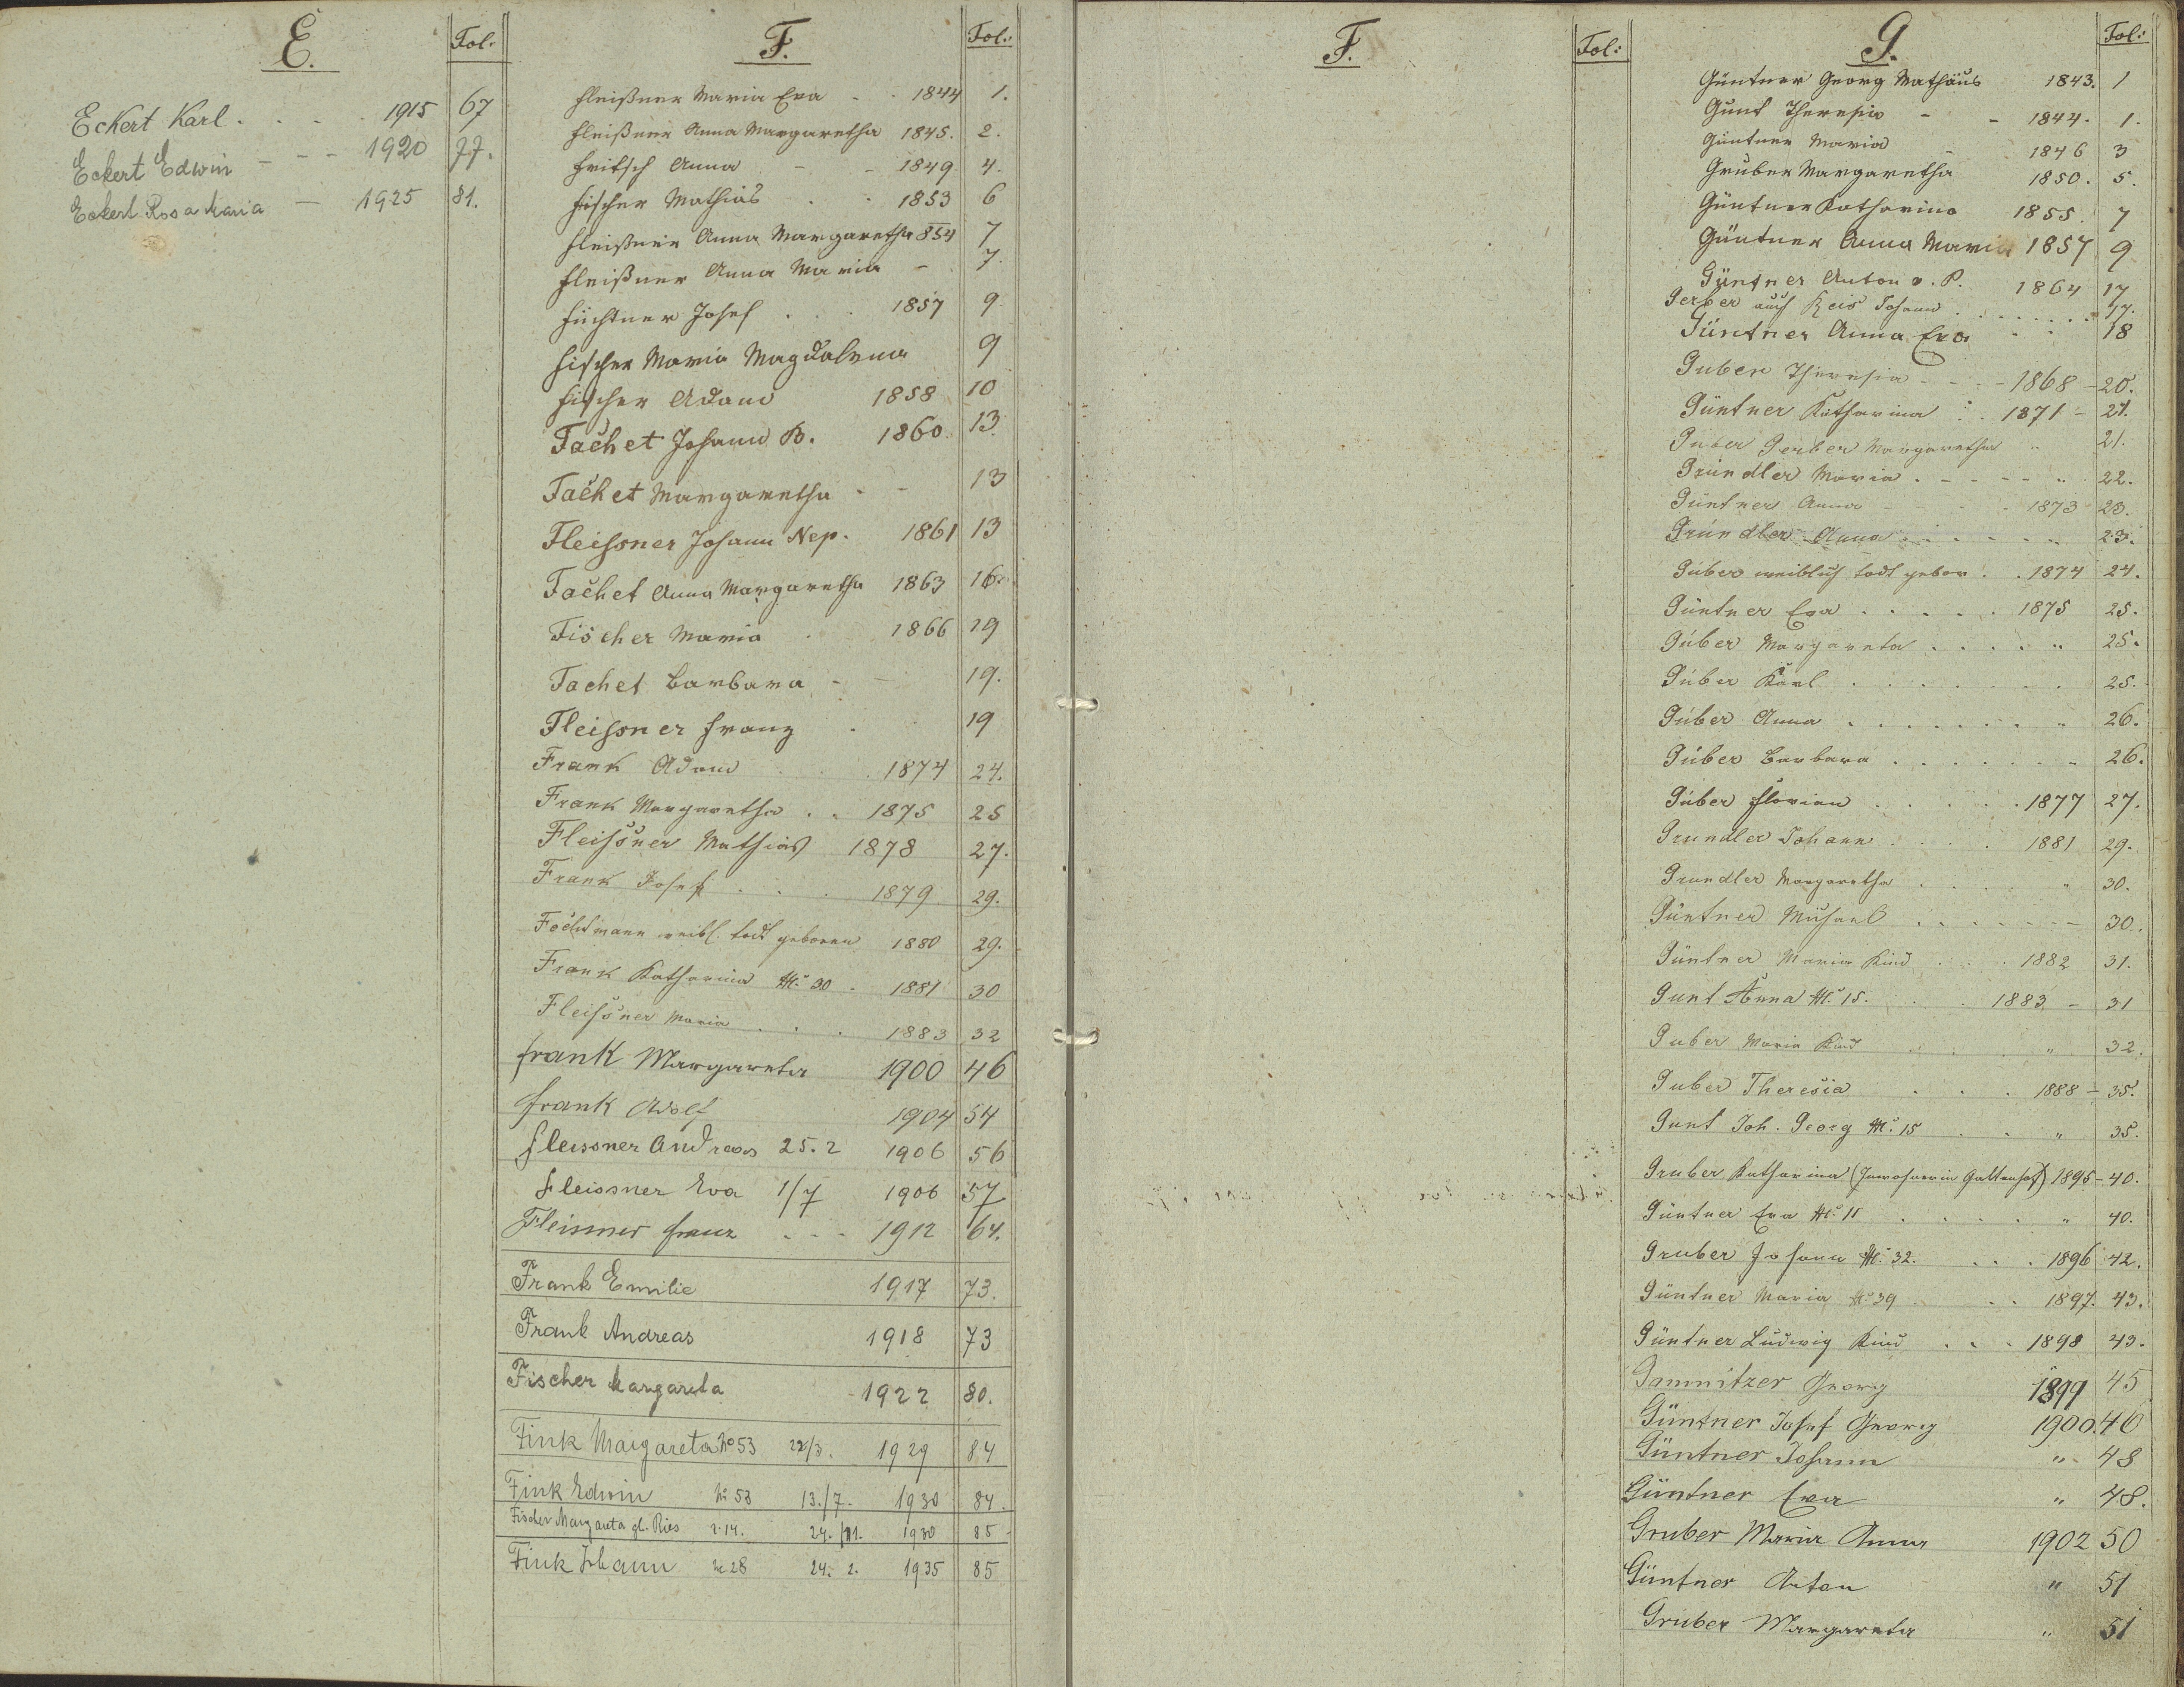 E.
Fol:
Eckert Karl . . . . 1915 67
Eckert Edwin - - - 1920 77.
Eckert Rosa Maria — 1925 81.
F.
Fol:
Fleißner Maria Eva . . 1844 1.
Fleißner Anna Margaretha 1845. 2.
Fritsch Anna - - 1849 4.
Fischer Mathias . . 1853 6
Fleißner Anna Margaretha 854 7
Fleißner Anna Maria - 7.
Füchtner Josef . . . 1857 9
Fischer Maria Magdalena 9
Fischer Adam 1858 10
Fachet Johann B. 1860. 13.
Fachet Margaretha - - 13
Fleissner Johann Nep. 1861 13
Fachet Anna Margaretha 1863 16.
Fischer Maria . 1866 19
Fachet Barbara - - 19.
Fleissner Franz . 19
Frank Adam . . 1874 24.
Frank Margaretha . . 1875 25
Fleissner Mathias 1878 27.
Frank Josef . . . 1879 29.
weibl. todt geboren 1880 29.
Frank Katharina N. 30 . 1881 30
Fleissner Maria . . . 1883 32
Frank Margareta 1900 46
Frank Adolf 1904 54
Fleissner Andreas 25. 2 1906 56
Fleissner Eva 1/7 1906 57
Fleissner Franz - - - 1912 64.
Frank Emilie 1917 73.
Frank Andreas 1918 73
Fischer Margareta 1922 80.
Fink Margareta No 53 22/3. 1929 84
Fink Edwin No 53 13./7. 1930 84.
Fischer Margareta gb. Ries 14. 24. 1930 85
Fink Johann No 28 24. 2. 1935 85
F.
Fol:
G.
Fol:
Güntner Georg Mathäus 1843. 1
Gunt Theresia - - 1844. 1.
Güntner Maria - 1846 3
Gruber Margaretha 1850. 5.
Güntner Katharina 1855. 7
Güntner Anna Maria 1857 9
Güntner Anton v. P. 1864 17
Gerber auch Keis Johann . . . . . . . 17.
Güntner Anna Eva - - 18
Guber Theresia - - - - 1868 - 20.
Güntner Katharina . . 1871 - 21.
Gerber Margaretha " 21.
Gründler Maria . - - - - " 22.
Güntner Anna - - - - 1873 23.
Gründler Anna . . . . . " 23.
Guber weiblich todt gebor. . . 1874 24.
Güntner Eva . . . . . 1875 25.
Guber Margareta . . . . " 25.
Guber Karl . . . . . . . 25.
Guber Anna . . . . . . " 26.
Guber Barbara . . . . . . " 26.
Guber Florian . . . . . 1877 27.
Grundler Johann . . . . 1881 29.
Grundler Margaretha . . . . " 30.
Güntner Michael . . . . . . - 30.
Güntner Maria Kind . . . 1882 31.
Gunt Anna N. 15. . . 1883 - 31
Guber Maria Kind . . . " 32.
Guber Theresia . . . 1888 - 35.
Gunt Joh. Georg N. 15 . . " 35.
Gruber Katharina (Inwohnerin Galtenhof) 1895 - 40.
Güntner Eva N. 11 . . . . " 40.
Gruber Johann N. 32. . . . 1896 42.
Güntner Maria N. 39 . . . 1897. 43.
Güntner Ludwig Kind . . . 1898 43.
Gamnitzer Georg 1899 45
Güntner Josef Georg 1900. 46
Güntner Johann " 48
Güntner Eva " 48.
Gruber Maria Anna 1902 50
Güntner Anton " 51
Gruber Margareta " 51